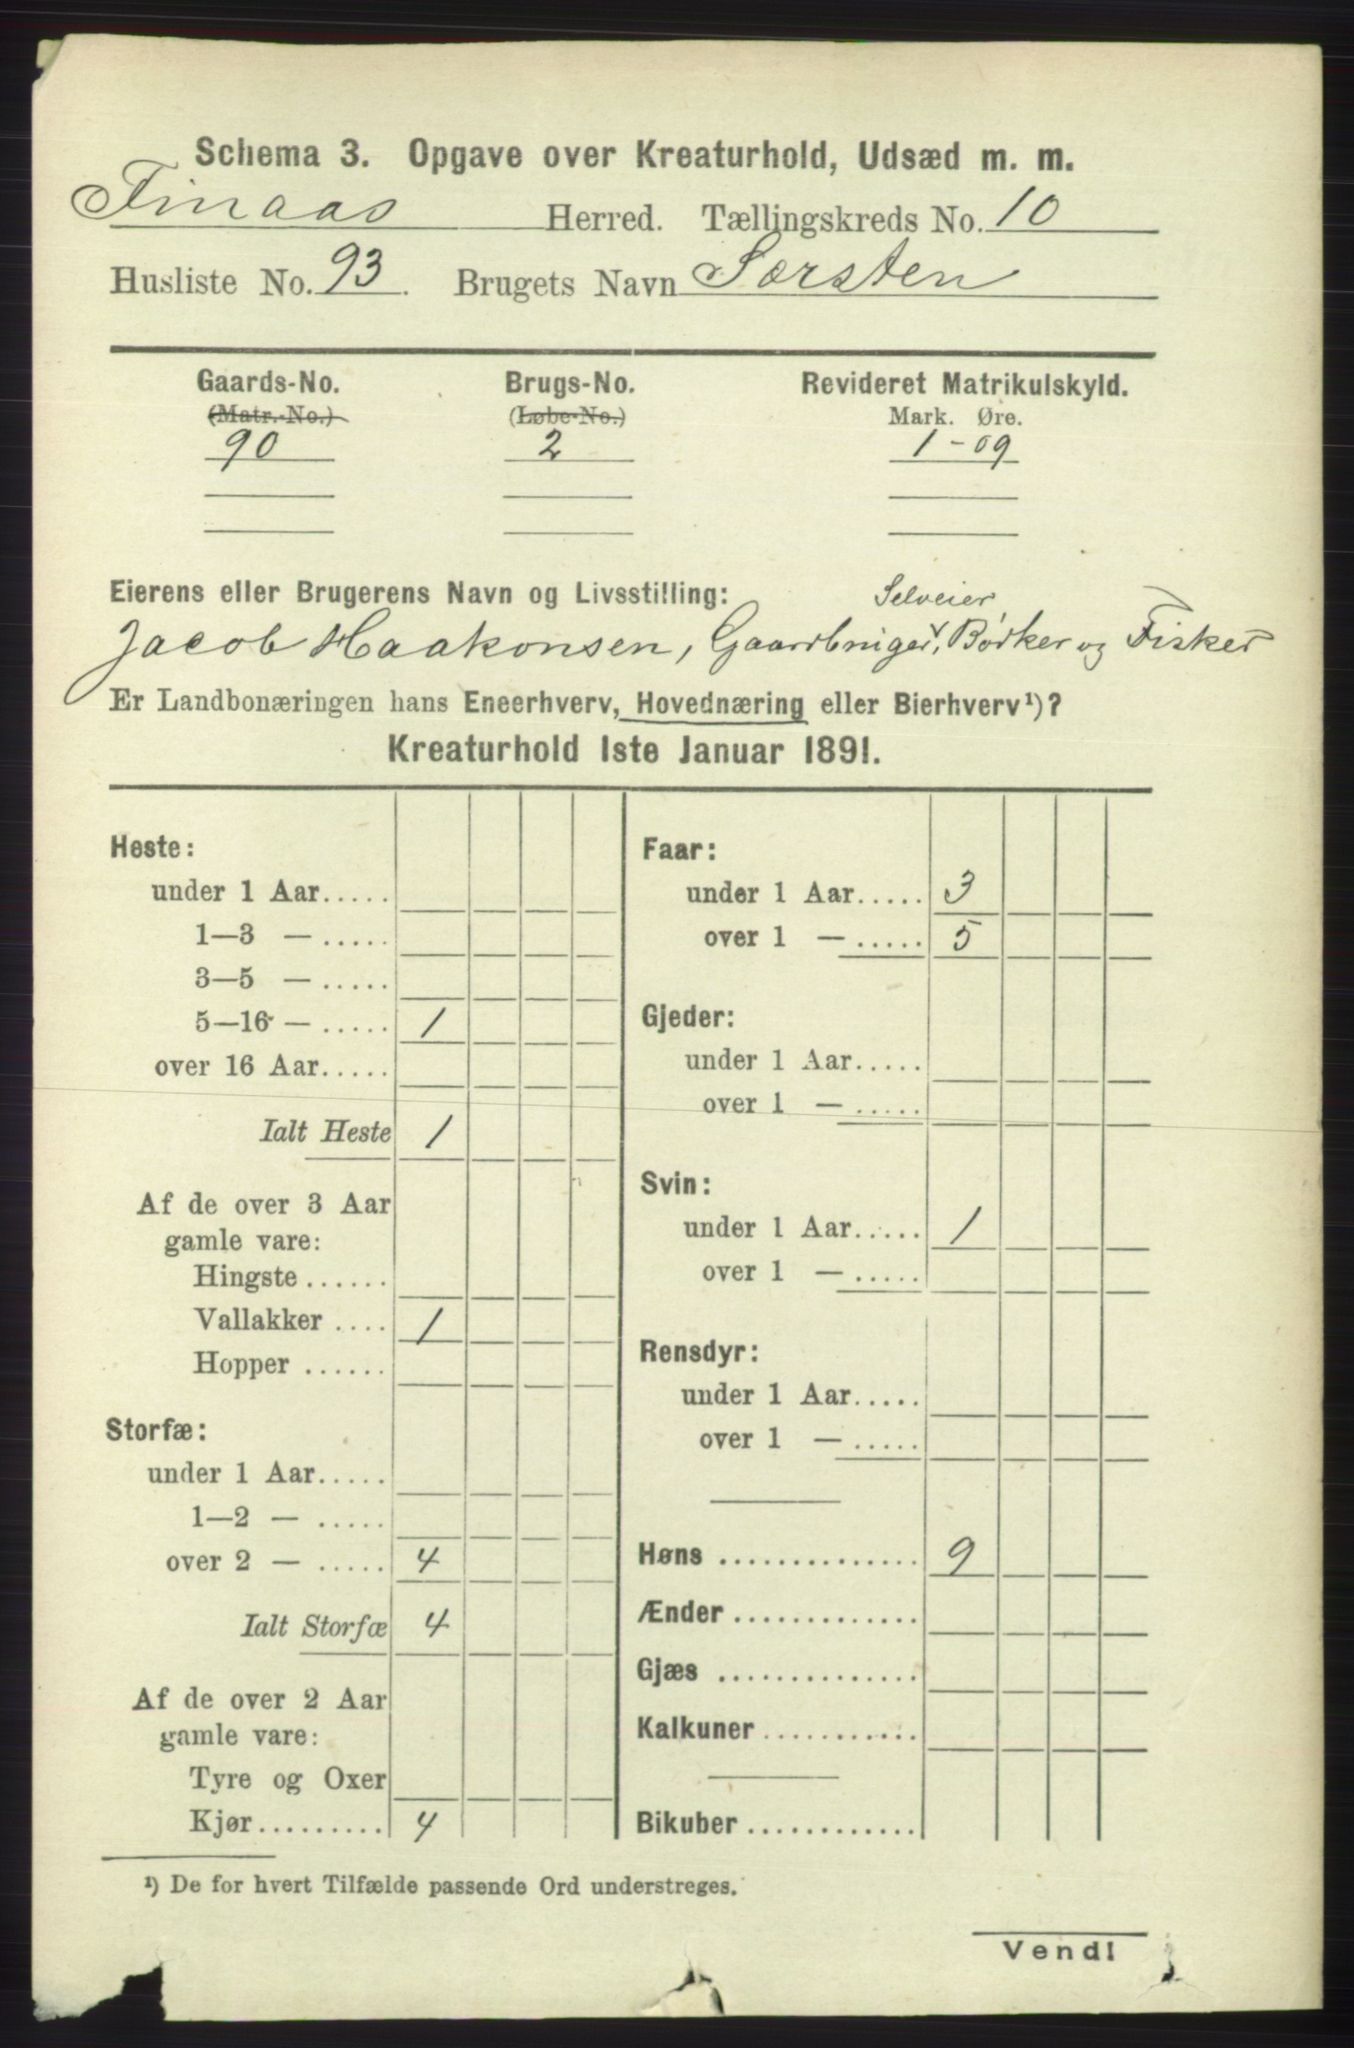 Schema 3. Opgave over Kreaturhold, Udsæd m. m.
Finaas Herred. Tællingskreds No. 10
Husliste No. 93. Brugets Navn Særsten
Gaards-No. Brugs-No. Revideret Matrikulskyld.
(Matr.-No.) (Løbe-No.) Mark. Øre.
90 2 1-09
Eierens eller Brugerens Navn og Livsstilling: Selveier
Jacob Haakonsen, Gaardbruger, Bødker og Fisker
Er Landbonæringen hans Eneerhverv, Hovednæring eller Bierhverv¹)?
Kreaturhold 1ste Januar 1891.
Heste:
under 1 Aar.....
1—3 — .....
3—5 — .....
5—16 — ..... 1
over 16 Aar.....
Ialt Heste 1
Af de over 3 Aar
gamle vare:
Hingste ......
Vallakker .... 1
Hopper ......
Storfæ:
under 1 Aar.....
1—2 — .....
over 2 — ..... 4
Ialt Storfæ 4
Af de over 2 Aar
gamle vare:
Tyre og Oxer
Kjør......... 4
Faar:
under 1 Aar..... 3
over 1 — ..... 5
Gjeder:
under 1 Aar.....
over 1 — .....
Svin:
under 1 Aar..... 1
over 1 — .....
Rensdyr:
under 1 Aar.....
over 1 — .....
Høns .............. 9
Ænder .............
Gjæs ..............
Kalkuner ...........
Bikuber ............
¹) De for hvert Tilfælde passende Ord understreges.
Vend!